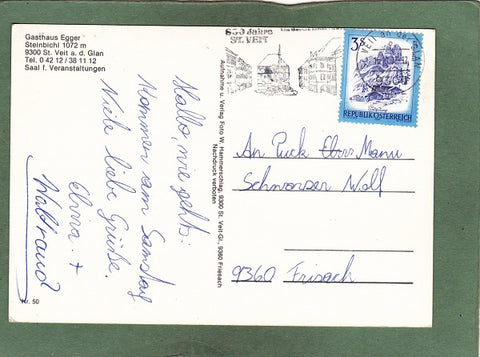 Gasthaus Egger
Steinbichl 1072 m
9300 St. Veit a. d. Glan
Tel. 0 42 12 / 38 11 12
Saal f. Veranstaltungen
Hallo, wie geht's.
Kommen am Samstag
Viele liebe Grüße
+
Waltraud
Nr. 50
Aufnahme u. Verlag Foto W. Hammerschlag, 9300 St. Veit-Gl., 9360 Friesach
Nachdruck verboten
850 Jahre
ST. VEIT
3 S
REPUBLIK ÖSTERREICH
An Puck Manu
Schwarzer Wolf
9360 Frisach